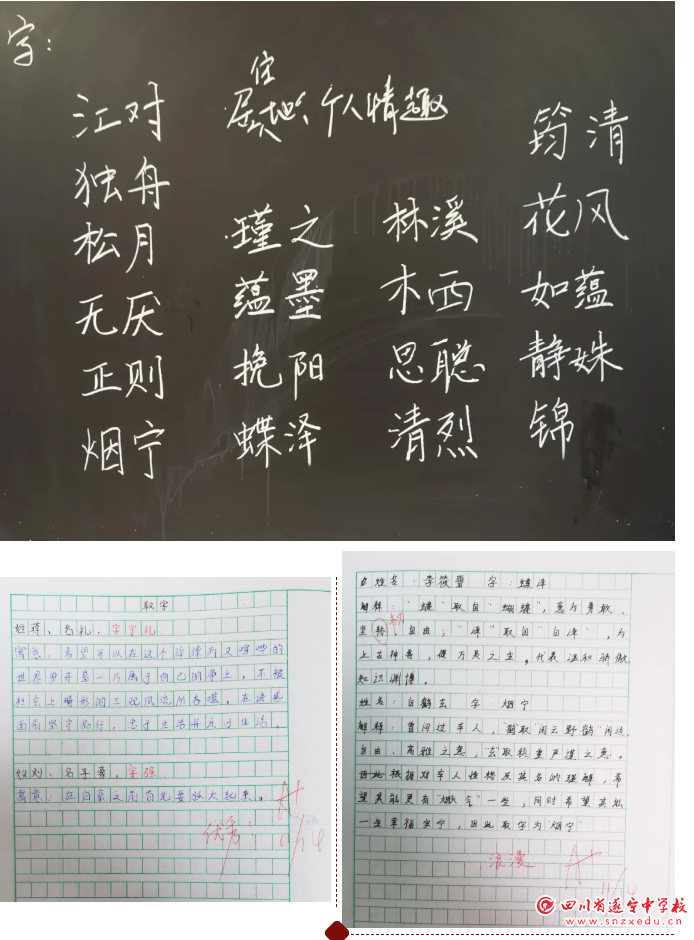 字:
住
居地、个人情趣
江对
独舟
松月
无厌
正则
烟宁
瑾之
蕴墨
挽阳
蝶泽
林溪
木西
思聪
清烈
筠清
花风
如蕴
静姝
锦
取字
姓蒋、名礼,字守礼
寓意:希望可以在这个浮躁而又喧哗的
世界里开垦一片属于自己的净土,不被
社会上畸形的三观风流所吞噬,在诱惑
面前坚守品行,忠于生活并乐于生活。
姓刘,名子豪,字强
寓意:在自豪之前首先要强大起来。
优秀!
A+
11/14
姓名:李筱蕾 字:蝶泽
解释:"蝶"取自"蝴蝶",意为勇敢、
坚韧、自由;"泽"取自"白泽",为
上古神兽,使万灵之主。代表温和骄傲,
知识渊博。
姓名:白鹤玄 字:烟宁
解释:曾问过本人,"鹤"取"闲云野鹤"闲适、
自由、高雅之意,"玄"取稳重严谨之意。
因此根据对本人性格及其名的理解,希
望其能更有"烟气"一些,同时希望其能
一生幸福安宁,因此取字为"烟宁"
浪漫
A+
四川省遂宁中学校
www.snzxedu.cn